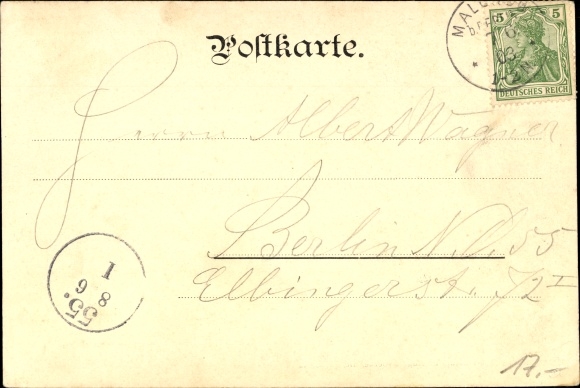 Postkarte.
5 5
DEUTSCHES REICH
Herrn Albert Wagner
Berlin N.O. 55
Elbingerstr. 72 I
55.
8
6
I
17,-